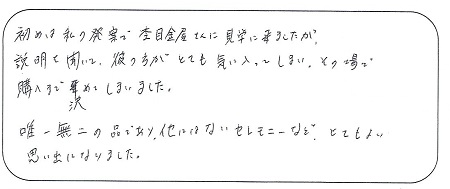 初めは私の発案で杢目金屋さんに見学に来ましたが、
説明を聞いて、彼の方がとても気に入ってしまい、その場で
購入まで決めてしまいました。
唯一無二の品であり、他にはないセレモニーなど、とてもよい
思い出になりました。